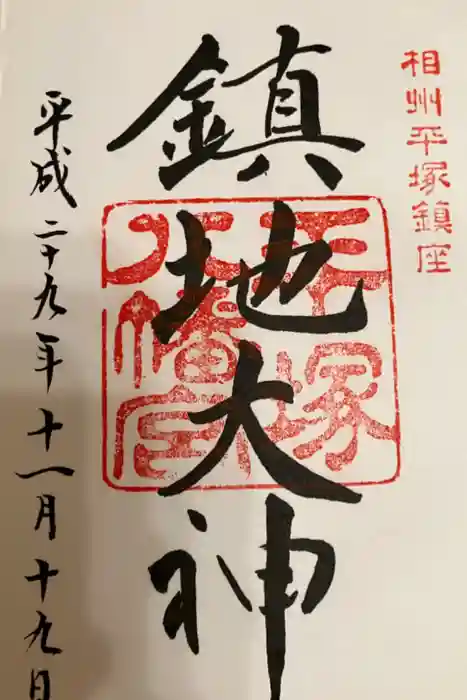 相州平塚鎮座
鎮地大神
平塚
八幡宮
平成二十九年十一月十九日